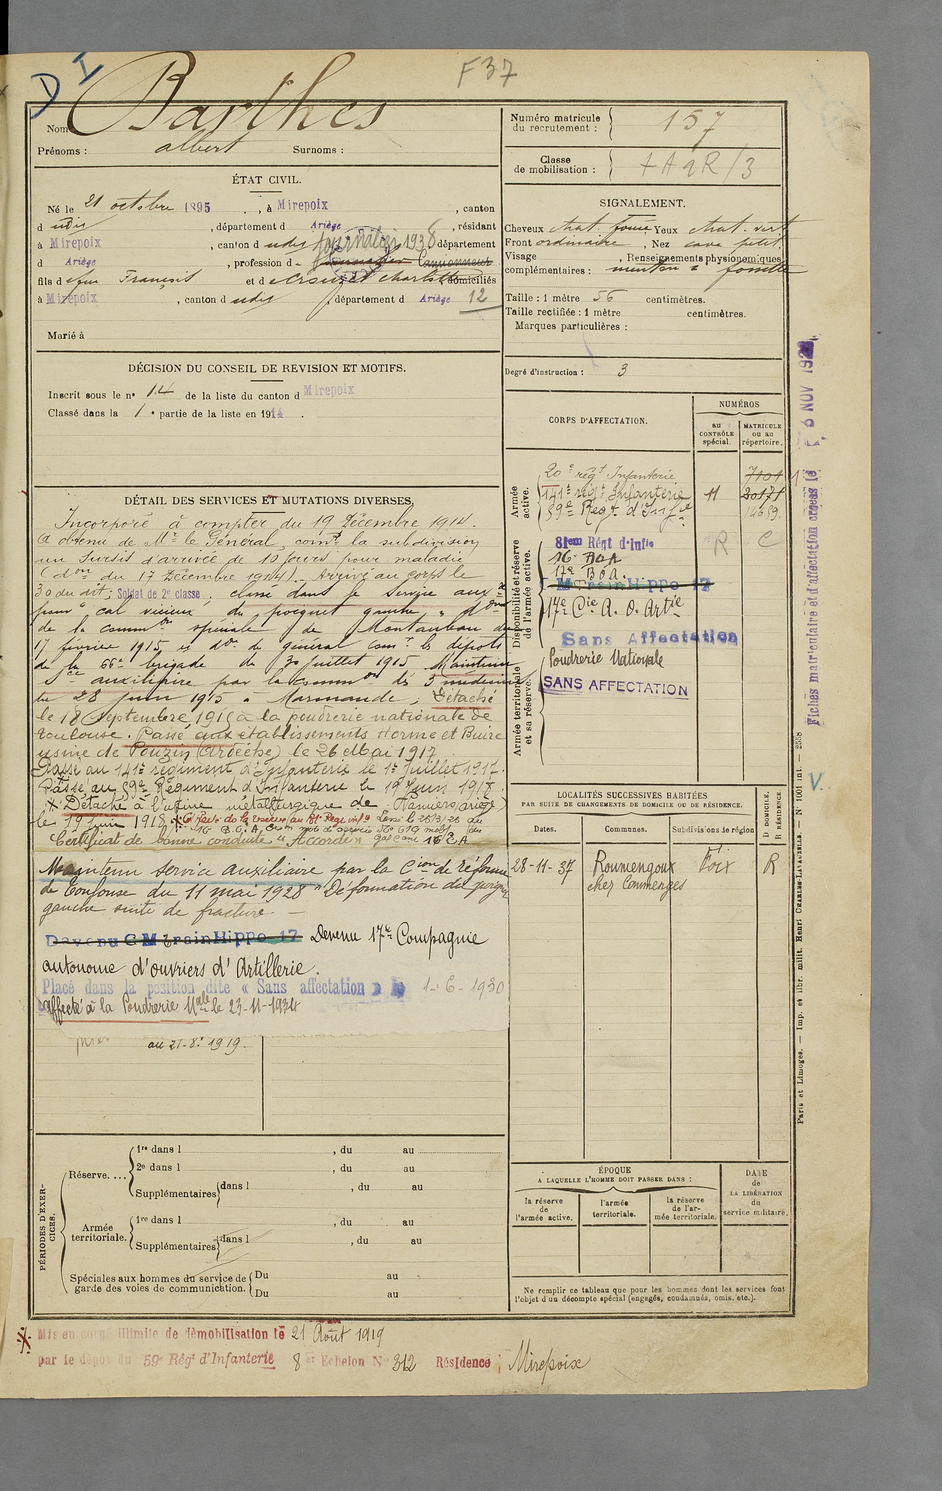 D I
F 37
Nom : Barthes
Prénoms : albert Surnoms :
Numéro matricule du recrutement : 157
Classe de mobilisation :
ÉTAT CIVIL.
Né le 21 octobre 1895, à Mirepoix, canton
d udis, département d Ariège, résidant
à Mirepoix, canton d udis, 1938 département
d Ariège, profession d
fils d feu François et d Charlotte domiciliés
à Mirepoix, canton d udis, département d Ariège 12
Marié à
SIGNALEMENT.
Cheveux chat. Yeux chat. vert
Front ordinaire, Nez cave petit
Visage , Renseignements physionomiques
complémentaires : menton à fossette
Taille : 1 mètre 56 centimètres.
Taille rectifiée : 1 mètre centimètres.
Marques particulières :
Degré d'instruction : 3
DÉCISION DU CONSEIL DE REVISION ET MOTIFS.
Inscrit sous le n° 14 de la liste du canton d Mirepoix
Classé dans la 1e partie de la liste en 1914.
DÉTAIL DES SERVICES ET MUTATIONS DIVERSES.
Incorporé à compter du 19 Décembre 1914.
A obtenu de Mr le Général comt la subdivision
un sursis d'arrivée de 10 jours pour maladie
(don du 17 Décembre 1914). Arrivé au corps le
30 du dit ; Soldat de 2e classe, classé dans le service aux
pour "cal vicieux du poignet gauche" don
de la common spéciale de Montauban du
17 février 1915 et don du général comt les dépots
de la 66e brigade du 30 juillet 1915. Maintenu
sce auxiliaire par la common des 3 médecins
du 28 juin 1915 à Marmande. Détaché
le 18 Septembre 1916 à la poudrerie nationale de
Toulouse. Passé aux établissements Horme et Buire
usine de Pouzin (Ardèche) le 26 Mai 1917.
Passé au 141e régiment d'Infanterie le 1er Juillet 1917.
Passé au 59e Régiment d'Infanterie le 19 Juin 1918.
* Détaché à l'usine métallurgique de Pamiers (Ariège)
le 19 juin 1918 *
Certificat de bonne conduite "Accordé"
Maintenu service auxiliaire par la Cion de réforme
de Toulouse du 11 mai 1928 "Déformation du poignet
gauche suite de fracture –
Devenu C M train Hippo 17 Devenu 17e Compagnie
autonome d'ouvriers d'Artillerie.
Placé dans la position dite « Sans affectation » le 1-6-1930
affecté à la Poudrerie Nale le 23-11-1934
au 21-8-1919.
CORPS D'AFFECTATION.
NUMÉROS
au CONTRÔLE spécial.
MATRICULE ou au répertoire.
Armée active.
20e régt Infanterie 7101
141e régt Infanterie 11 20171
59e Regt d'Infie 14659
Disponibilité et réserve de l'armée active.
81em Régt d'Infie R C
16e BOA
17e B.O.A.
M train Hippo 17
17e Cie A. O. Artie
Sans Affectation
Armée territoriale et sa réserve.
Poudrerie Nationale
SANS AFFECTATION
Fiches matriculaire et d'affectation créées le
LOCALITÉS SUCCESSIVES HABITÉES
PAR SUITE DE CHANGEMENTS DE DOMICILE OU DE RÉSIDENCE.
Dates. Communes. Subdivisions de région D DOMICILE. R RÉSIDENCE
28-11-37 Roumengoux Foix R
chez Commenges
PÉRIODES D'EXERCICES.
Réserve....
1re dans l , du au
2e dans l , du au
Supplémentaires dans l , du au
Armée territoriale.
1re dans l , du au
Supplémentaires dans l , du au
Spéciales aux hommes du service de garde des voies de communication.
Du au
Du au
ÉPOQUE
A LAQUELLE L'HOMME DOIT PASSER DANS :
la réserve de l'armée active.
l'armée territoriale.
la réserve de l'armée territoriale.
DATE de LA LIBÉRATION du service militaire.
Ne remplir ce tableau que pour les hommes dont les services font
l'objet d'un décompte spécial (engagés, condamnés, omis, etc.).
Paris et Limoges. — Imp. et libr. milit. Henri CHARLES-LAVAUZELLE.
* Mis en congé illimité de démobilisation le 21 Août 1919
par le dépôt du 59e Régt d'Infanterie 8e Echelon N° 312 Résidence : Mirepoix